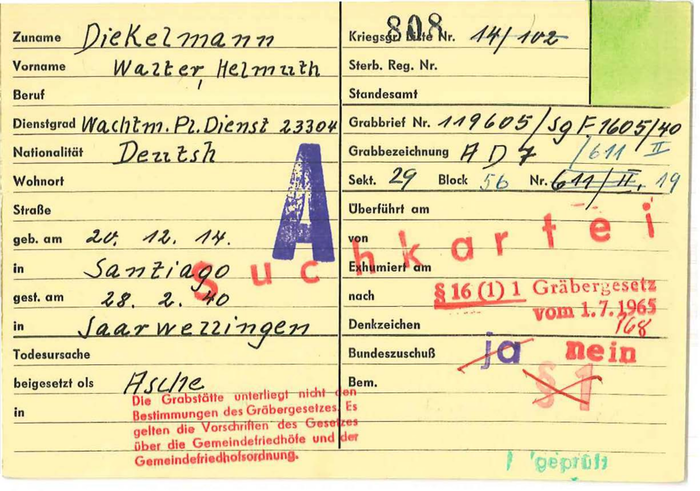 808
Zuname Diekelmann
Vorname Walter, Helmuth
Beruf
Dienstgrad Wachtm. Pl. Dienst 23304
Nationalität Deutsh
Wohnort
Straße
geb. am 20. 12. 14.
in Santiago
gest. am 28. 2. 40
in Saarwellingen
Todesursache
beigesetzt als Asche
in
Die Grabstätte unterliegt nicht den
Bestimmungen des Gräbergesetzes. Es
gelten die Vorschriften des Gesetzes
über die Gemeindefriedhöfe und der
Gemeindefriedhofsordnung.
A
Suchkartei
Kriegsgr. Liste Nr. 14/102
Sterb. Reg. Nr.
Standesamt
Grabbrief Nr. 119605/Sg F 1605/40
Grabbezeichnung A D 7 /611 II
Sekt. 29 Block 56 Nr. 611/II, 19
Überführt am
von
Exhumiert am
nach
§ 16 (1) 1 Gräbergesetz
vom 1.7.1965
Denkzeichen 168
Bundeszuschuß ja nein
Bem. § 1
geprüft